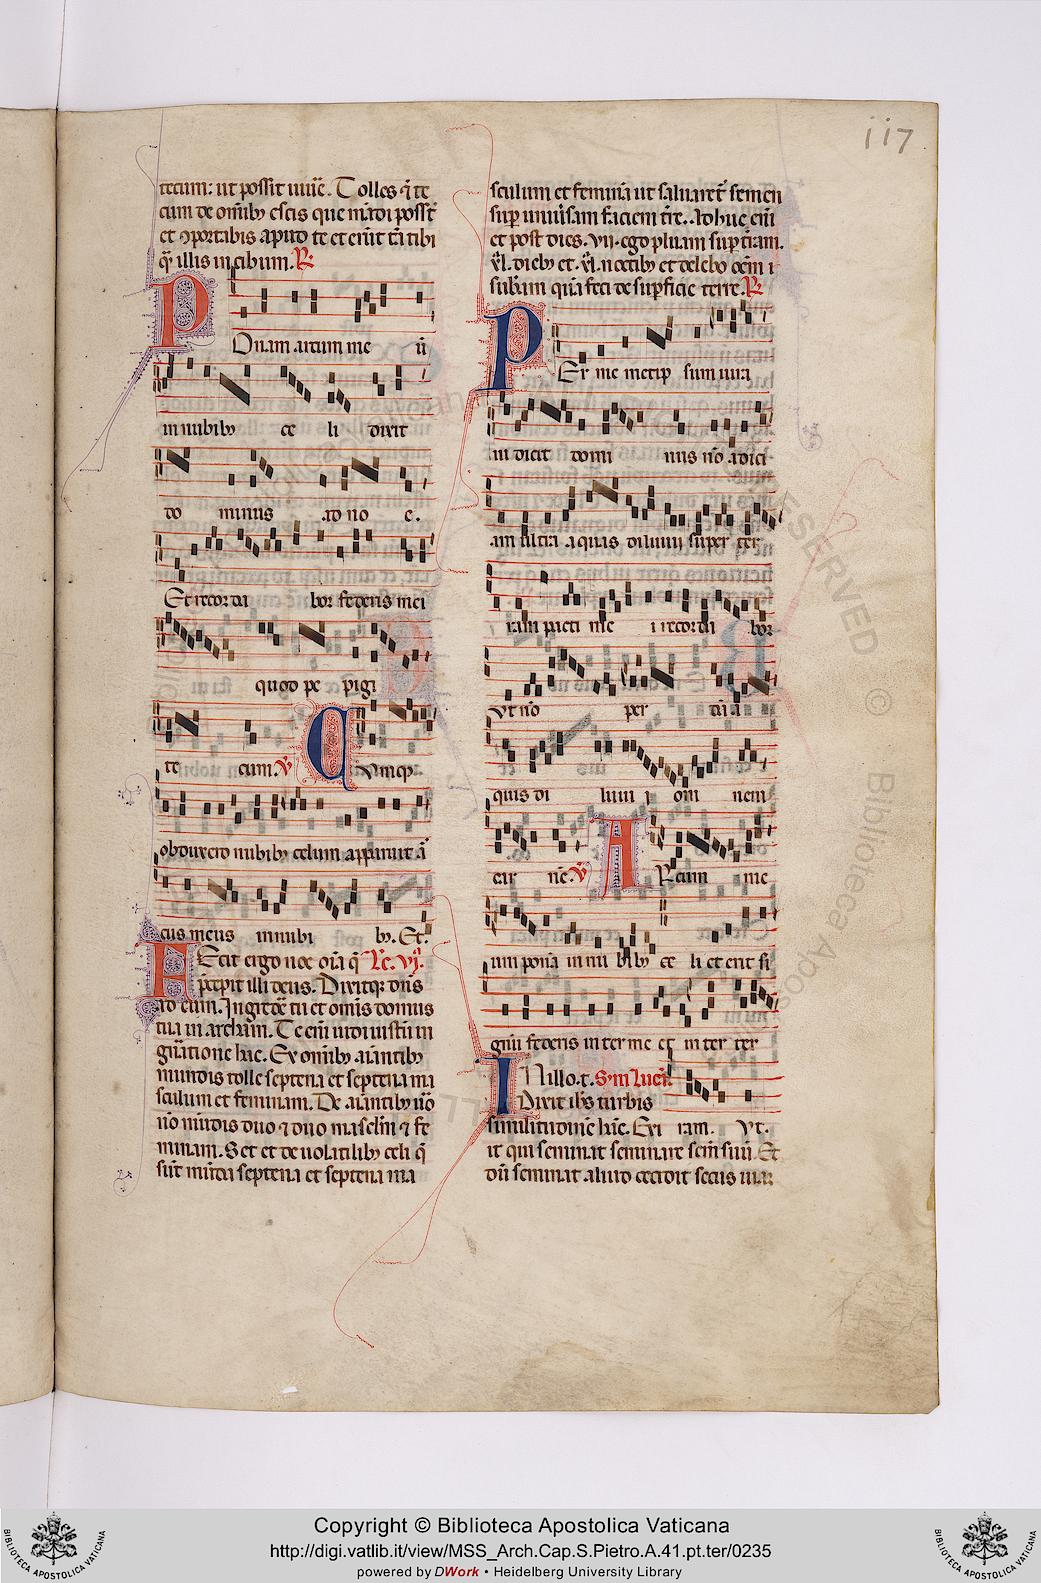 117
tecum: ut possit uiuẽ. Tolles ⁊ te
cum de om̃ib⁊ escis que mãdi poss̃t
et ꝯportabis apud te et erũt tã tibi
q̃ illis in cibum. R̃
POnam arcum me ũ
in nubib⁊ ce li dixit
do minus ad no e.
Et recorda bor federis mei
quod pe pigi
te cum. ℣ Cumq⁊
obduxero nubib⁊ celum apparuit ã
cus meus in nubi b⁊. Et.
FEcit ergo noe oĩa q̃ Lc̃. vj.
p̃cepit illi deus. Dixitq⁊ dñs
ad eum. Ingredẽ tu et omĩs domus
tua in archam. Te em̃ uidi iustũ in
gñatione hac. Ex omĩb⁊ aĩantib⁊
mundis tolle septena et septena ma
sculum et feminam. De aĩantib⁊ ũo
nõ mũdis duo ⁊ duo masclm̃ ⁊ fe
minam. Set et de uolatilib⁊ celi q̃
sũt mũda septena et septena ma
sculum et feminã ut saluaret̃ semen
sup uniũsam faciem tr̃e. Adhuc em̃
et post dies. vii. ego pluam sup tr̃am.
xl. dieb⁊ et. xl. noctib⁊ et delebo oẽm s
subãm quã feci de supficie terre. R̃
PEr me metip sum iura
ui dicit domi nus nõ adici
am ultra aquas diluuii super ter
ram pacti me i recorda bor
Vt nõ per dã a
quis di luuii om nem
car nẽ. ℣ ARcum me
um ponã in nu bib⁊ ce li et erit si
gnũ federis inter me et inter ter
IN illo. t. S̃m Lucã.
Dixit ih̃s turbis
similitudinẽ hãc. Exi ram. Vt.
it qui seminat seminare sem̃ suũ. Et
dũ seminat aliud cecidit secus uiã
RESERVED © Biblioteca Apos
Copyright © Biblioteca Apostolica Vaticana
http://digi.vatlib.it/view/MSS_Arch.Cap.S.Pietro.A.41.pt.ter/0235
powered by DWork • Heidelberg University Library
BIBLIOTECA APOSTOLICA VATICANA
BIBLIOTECA APOSTOLICA VATICANA